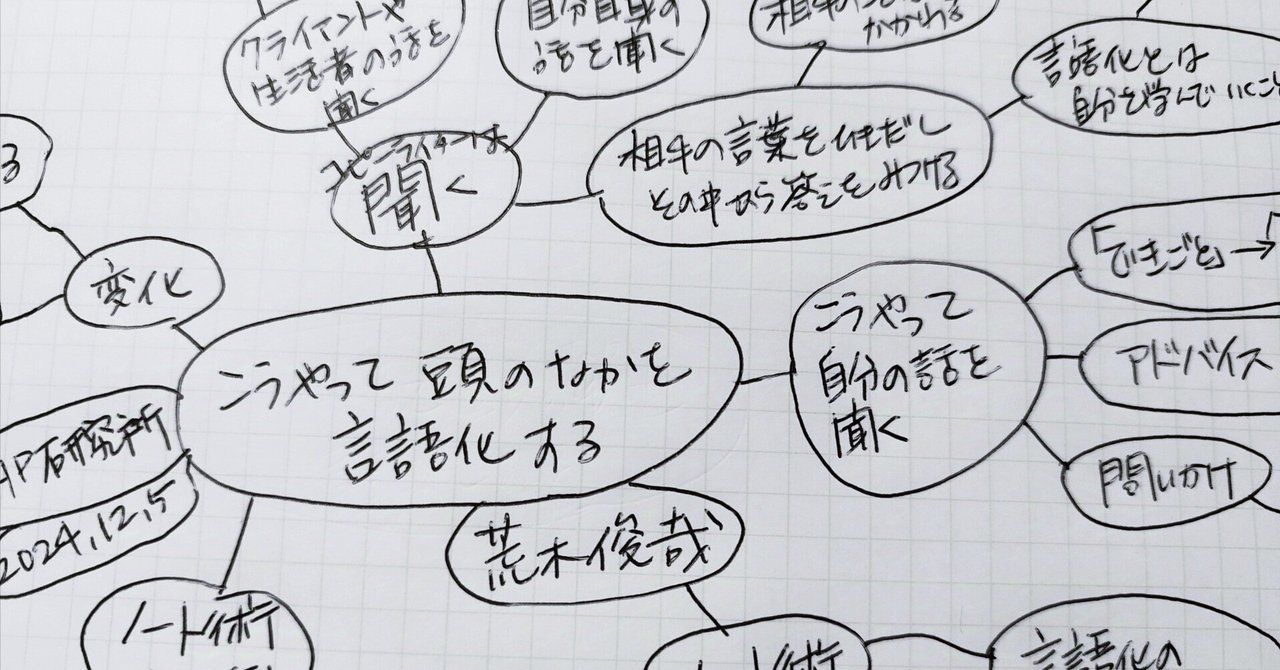 クライアントや
生活者の話を
聞く
自分自身の
話を聞く
かかわる
言語化とは
自分を学んでいくこと
コピーライターは
聞く
相手の言葉をひきだし
その中から答えをみつける
る
変化
こうやって頭のなかを
言語化する
こうやって
自分の話を
聞く
「できごと」→「
アドバイス
問いかけ
HP研究所
2024,12,5
荒木俊哉
ノート術
ノート術
言語化の